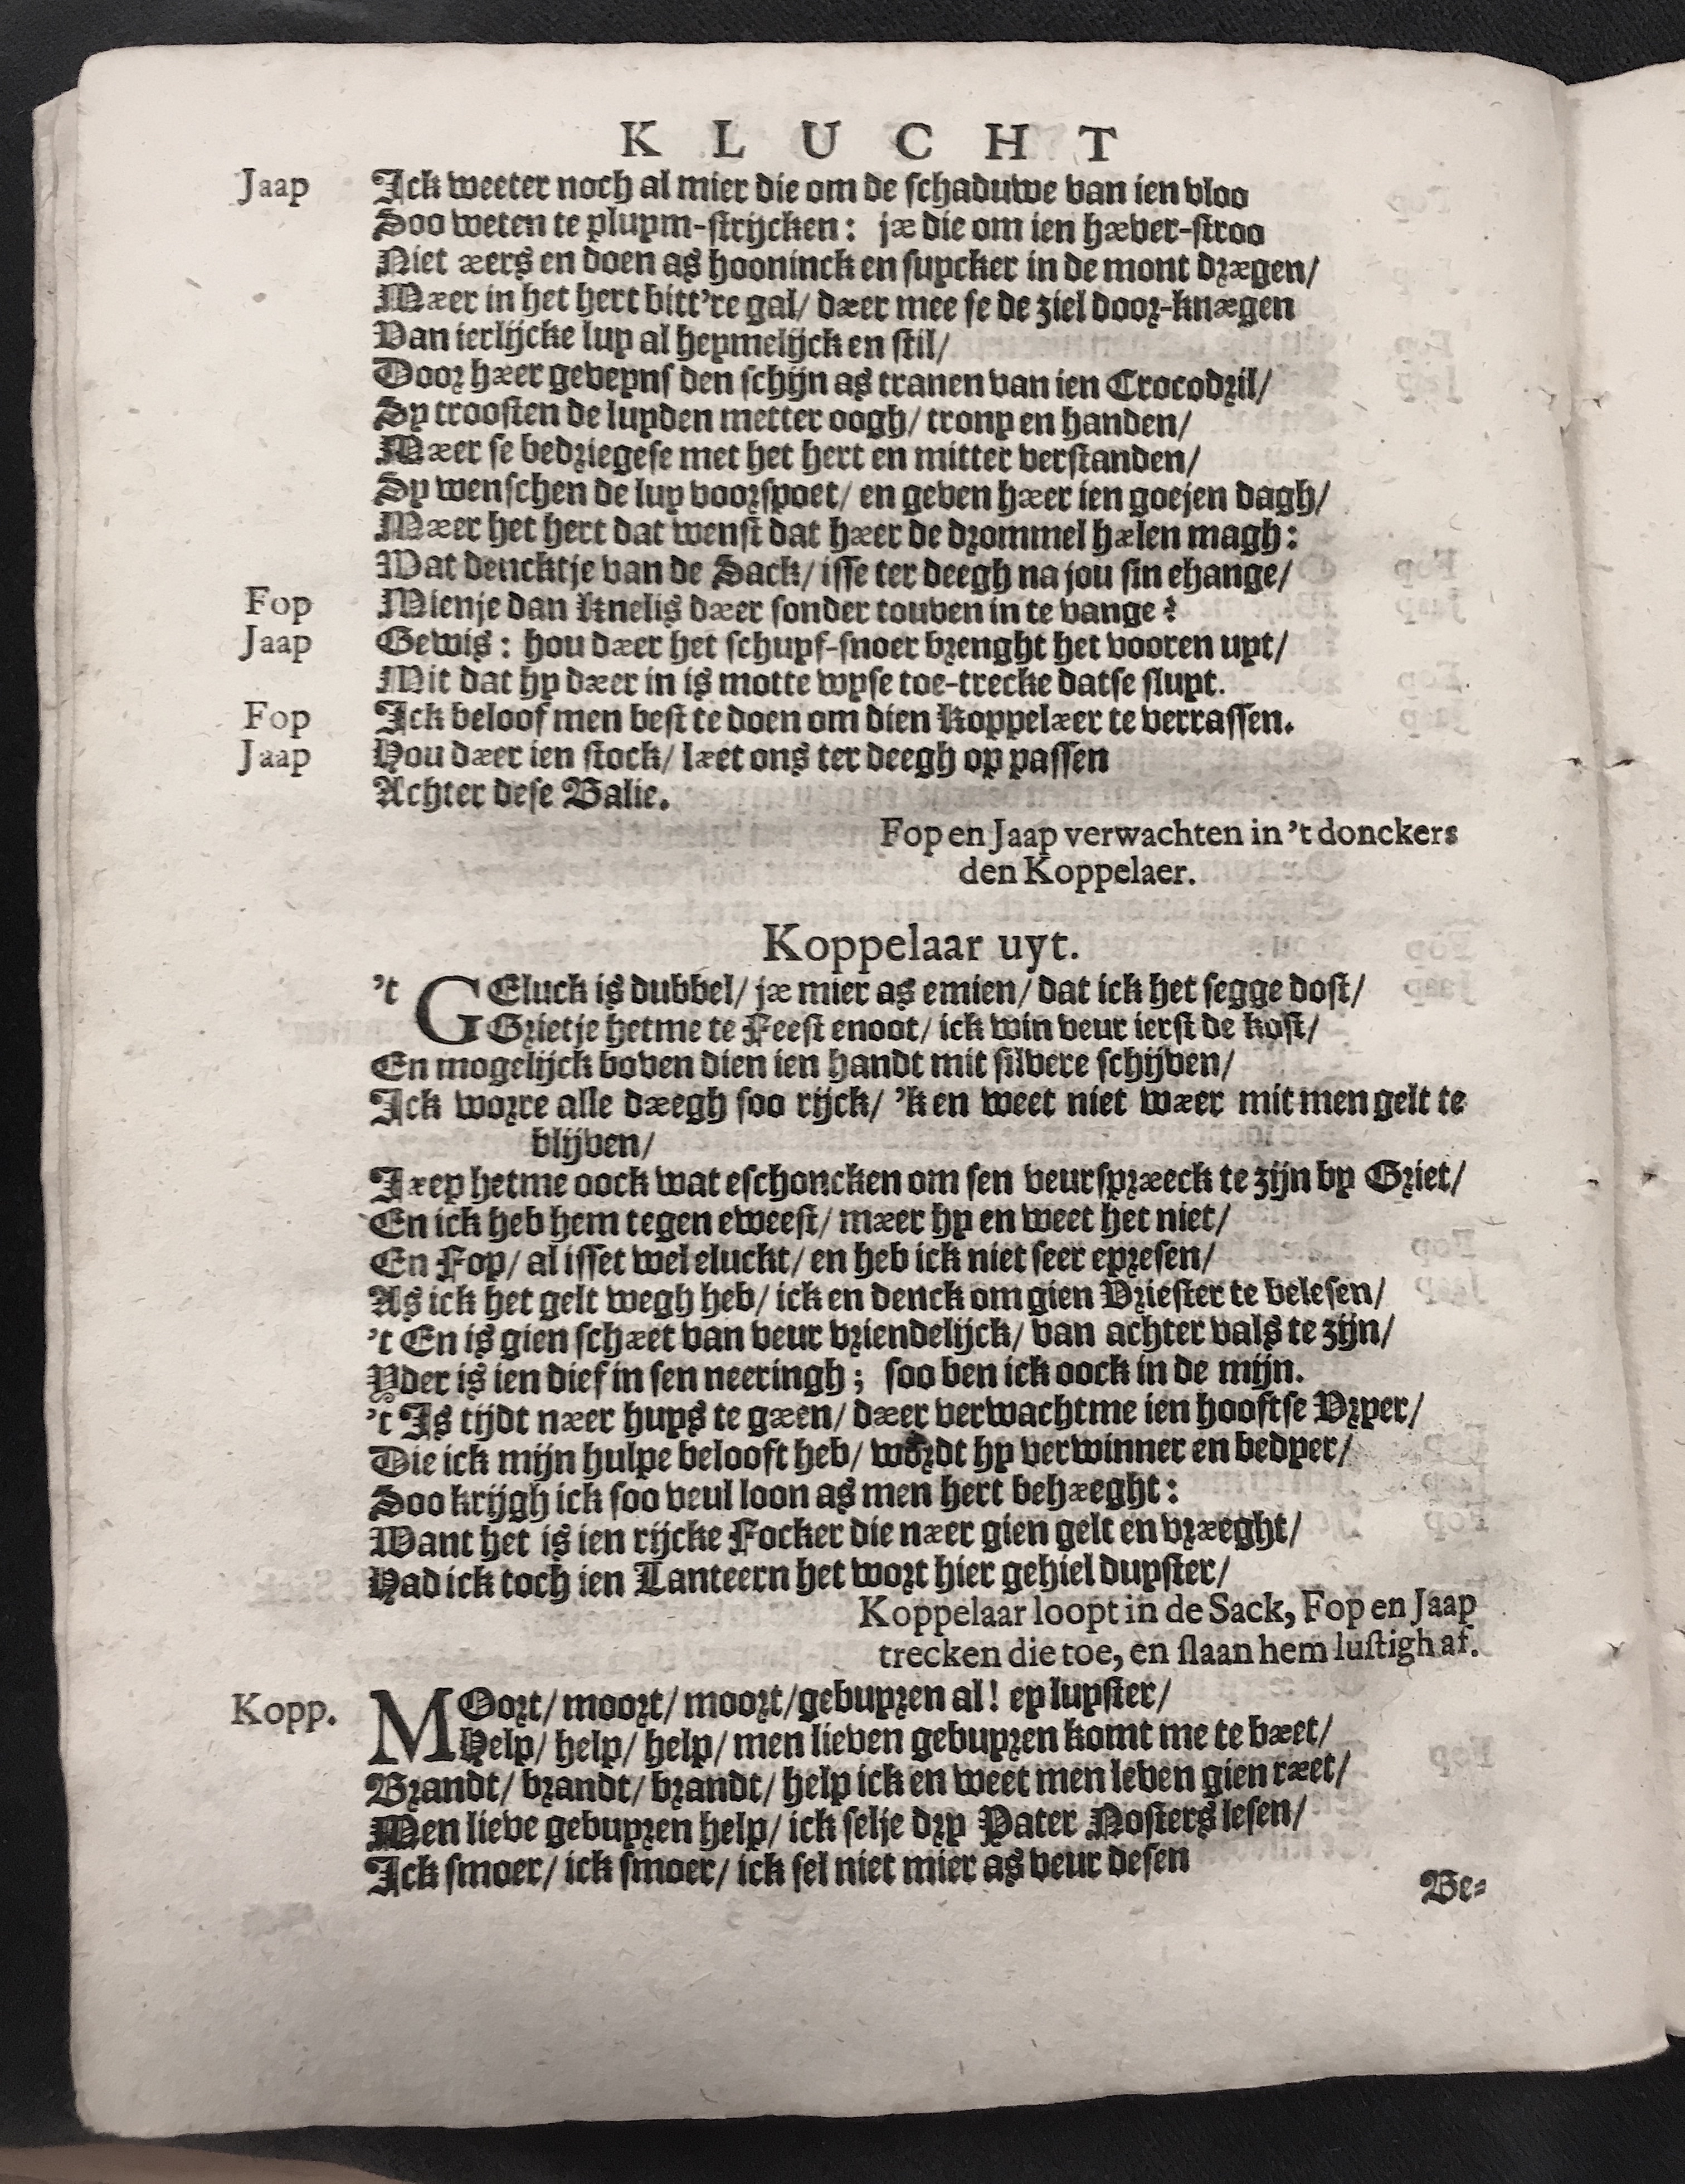 KLUCHT
Jaap Ick weeter noch al mier die om de schaduwe van ien vloo
Soo weten te pluym-strijcken: jæ die om ien hæver-stroo
Niet æers en doen as hooninck en suycker in de mont drægen/
Mæer in het hert bitt're gal/ dæer mee se de ziel door-knægen
Van ierlijcke luy al heymelijck en stil/
Door hæer geveyns den schijn as tranen van ien Crocodril/
Sy troosten de luyden metter oogh/ trony en handen/
Mæer se bedriegese met het hert en mitter verstanden/
Sy wenschen de luy voorspoet/ en geven hæer ien goejen dagh/
Mæer het hert dat wenst dat hæer de drommel hælen magh:
Wat dencktje van de Sack/ isse ter deegh na jou sin ehange/
Fop Mienje dan Knelis dæer sonder touven in te vange?
Jaap Gewis: hou dæer het schuyf-snoer brenght het vooren uyt/
Mit dat hy dæer in is motte wyse toe-trecke datse sluyt.
Fop Ick beloof men best te doen om dien Koppelæer te verrassen.
Jaap Hou dæer ien stock/ læet ons ter deegh op passen
Achter dese Balie.
Fop en Jaap verwachten in 't donckers
den Koppelaer.
Koppelaar uyt.
't GEluck is dubbel/ jæ mier as emien/ dat ick het segge dost/
Grietje hetme te Feest enoot/ ick win veur ierst de kost/
En mogelijck boven dien ien handt mit silvere schijven/
Ick worre alle dæegh soo rijck/ 'k en weet niet wæer mit men gelt te
blijven/
Jæep hetme oock wat eschoncken om sen veurspræeck te zijn by Griet/
En ick heb hem tegen eweest/ mæer hy en weet het niet/
En Fop/ al isset wel eluckt/ en heb ick niet seer epresen/
As ick het gelt wegh heb/ ick en denck om gien Priester te belesen/
't En is gien schæet van veur vriendelijck/ van achter vals te zijn/
Yder is ien dief in sen neeringh; soo ben ick oock in de mijn.
't Is tijdt næer huys te gæen/ dæer verwachtme ien hooftse Vryer/
Die ick mijn hulpe belooft heb/ wordt hy verwinner en bedyer/
Soo krijgh ick soo veul loon as men hert behæeght:
Want het is ien rijcke Focker die næer gien gelt en vræeght/
Had ick toch ien Lanteern het wort hier gehiel duyster/
Koppelaar loopt in de Sack, Fop en Jaap
trecken die toe, en slaan hem lustigh af.
Kopp. MOort/ moort/ moort/ gebuyren al! ey luyster/
Help/ help/ help/ men lieven gebuyren komt me te bæet/
Brandt/ brandt/ brandt/ help ick en weet men leven gien ræet/
Men lieve gebuyren help/ ick selje dry Pater Nosters lesen/
Ick smoer/ ick smoer/ ick sel niet mier as veur desen
Be-